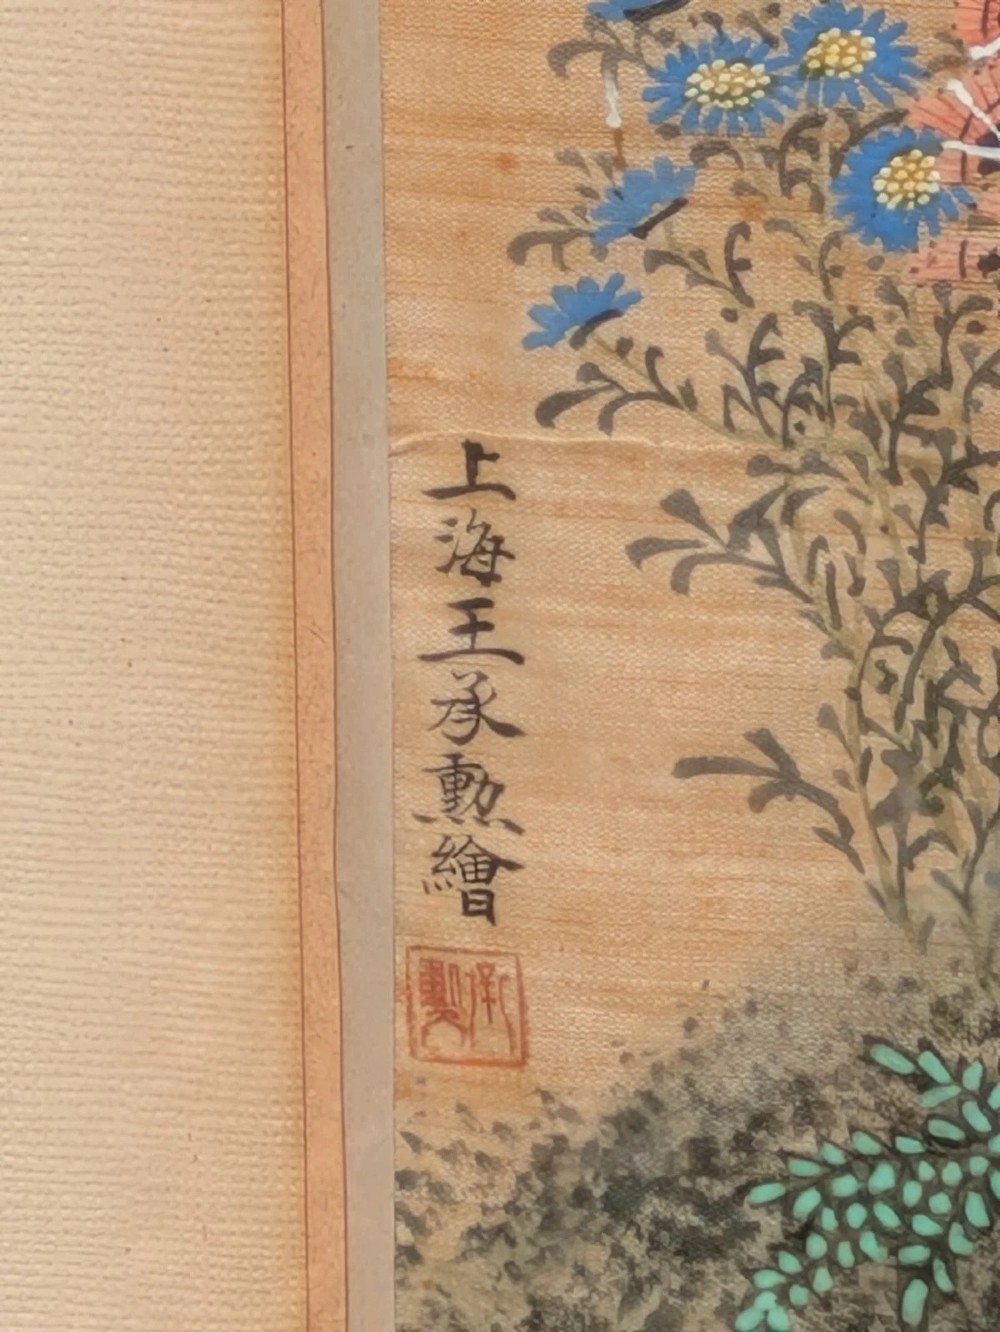 上海王承勳繪
承勳